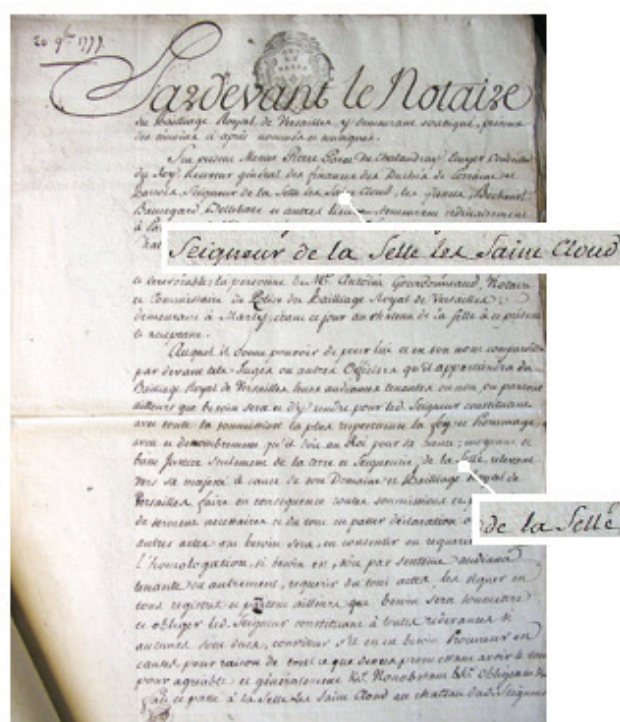 20 9bre 1777.
Pardevant le Notaire
du Bailliage Royal de Versailles y demeurant soussigné, présence
des témoins cy après nommés
fut présent Pierre de Chalandray, Ecuyer Conseiller
du Roy, Receveur général des finances des Duchés de Lorraine et
Barrois, Seigneur de la Selle les Saint Cloud, les
Beauregard, et autres lieux demeurant ordinairement
à
Seigneur de la Selle les Saine Cloud
et irrévocable; la personne de Mr. Antoine Notaire
et Commissaire de Police du Bailliage Royal de Versailles;
demeurant à Marly, étant ce jour au chateau de la Selle à ce présent
et acceptant.
Auquel il donne pouvoir de pour lui et en son nom comparoître
par devant tels Juges ou autres Officiers qu'il appartiendra du
Bailliage Royal de Versailles leurs audiences tenantes ou non, ou partout
ailleurs que besoin sera et d'y rendre pour led. Seigneur constituant
avec toute la soumission la plus respectueuse la foy et hommage,
aveu et denombrement qu'il doit au Roi pour la haute, moyenne et
basse Justice seulement de la terre et Seigneurie de la Selle, relevant
vers sa majesté à cause de son Domaine et Bailliage Royal de
Versailles, faire en consequence toutes soumissions et
de serment necessaires et du tout en passer déclaration
de la Selle
autres actes que besoin sera, en consentir ou requerir
l'homologation, si besoin est, soit par sentence audience
tenante ou autrement, requerir du tout actes les signer en
tous registres et partout ailleurs que besoin sera soumettre
et obliger led. Seigneur constituant à toutes redevances si
aucunes sont dues, constituer s'il en est besoin Procureur en
causes pour raison de tout ce que dessus promettant avoir le tout
pour agreable et généralement &c. Nonobstant &c. Obligeant &c.
fait et passé à la Selle les Saint Cloud au chateau dud. Seigneur